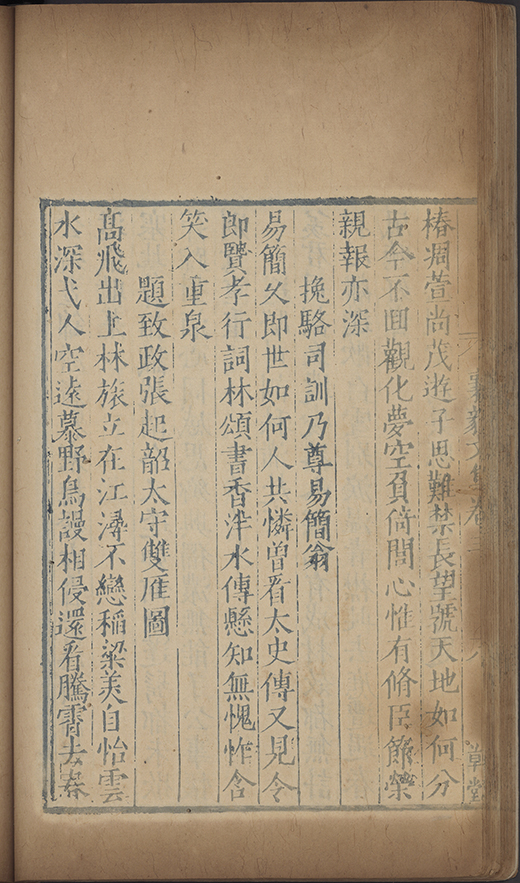 椿凋萱尚茂遊子思難禁長望號天地如何分
古今不回觀化夢空負倚閭心惟有脩臣節榮
親報亦深
挽駱司訓乃尊易簡翁
易簡久即世如何人共憐曽看太史傳又見令
即賢孝行詞林頌書香泮水傳懸知無愧怍含
笑入重泉
題致政張起韶太守雙雁圖
髙飛出上林旅立在江潯不戀稻粱美自怡雲
水深弋人空遠慕野鳥謾相侵還看騰霄去
草堂